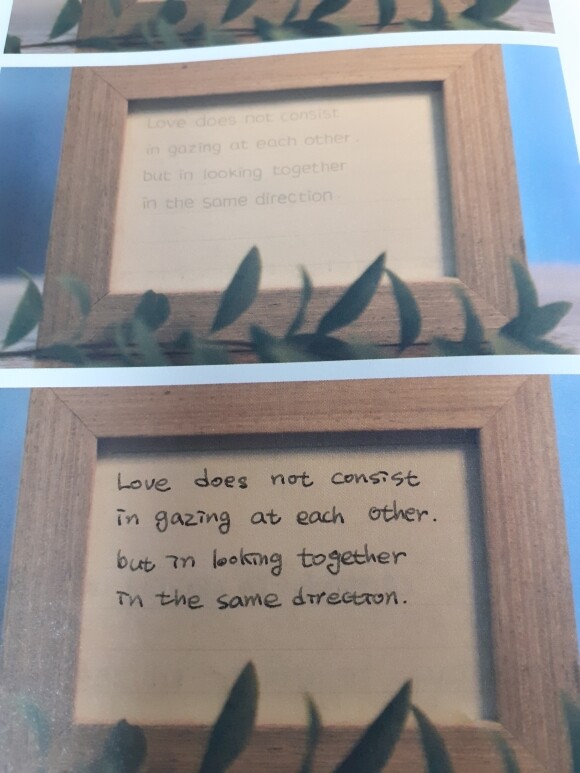 Love does not consist
in gazing at each other.
but in looking together
in the same direction
Love does not consist
in gazing at each other.
but in looking together
in the same direction.